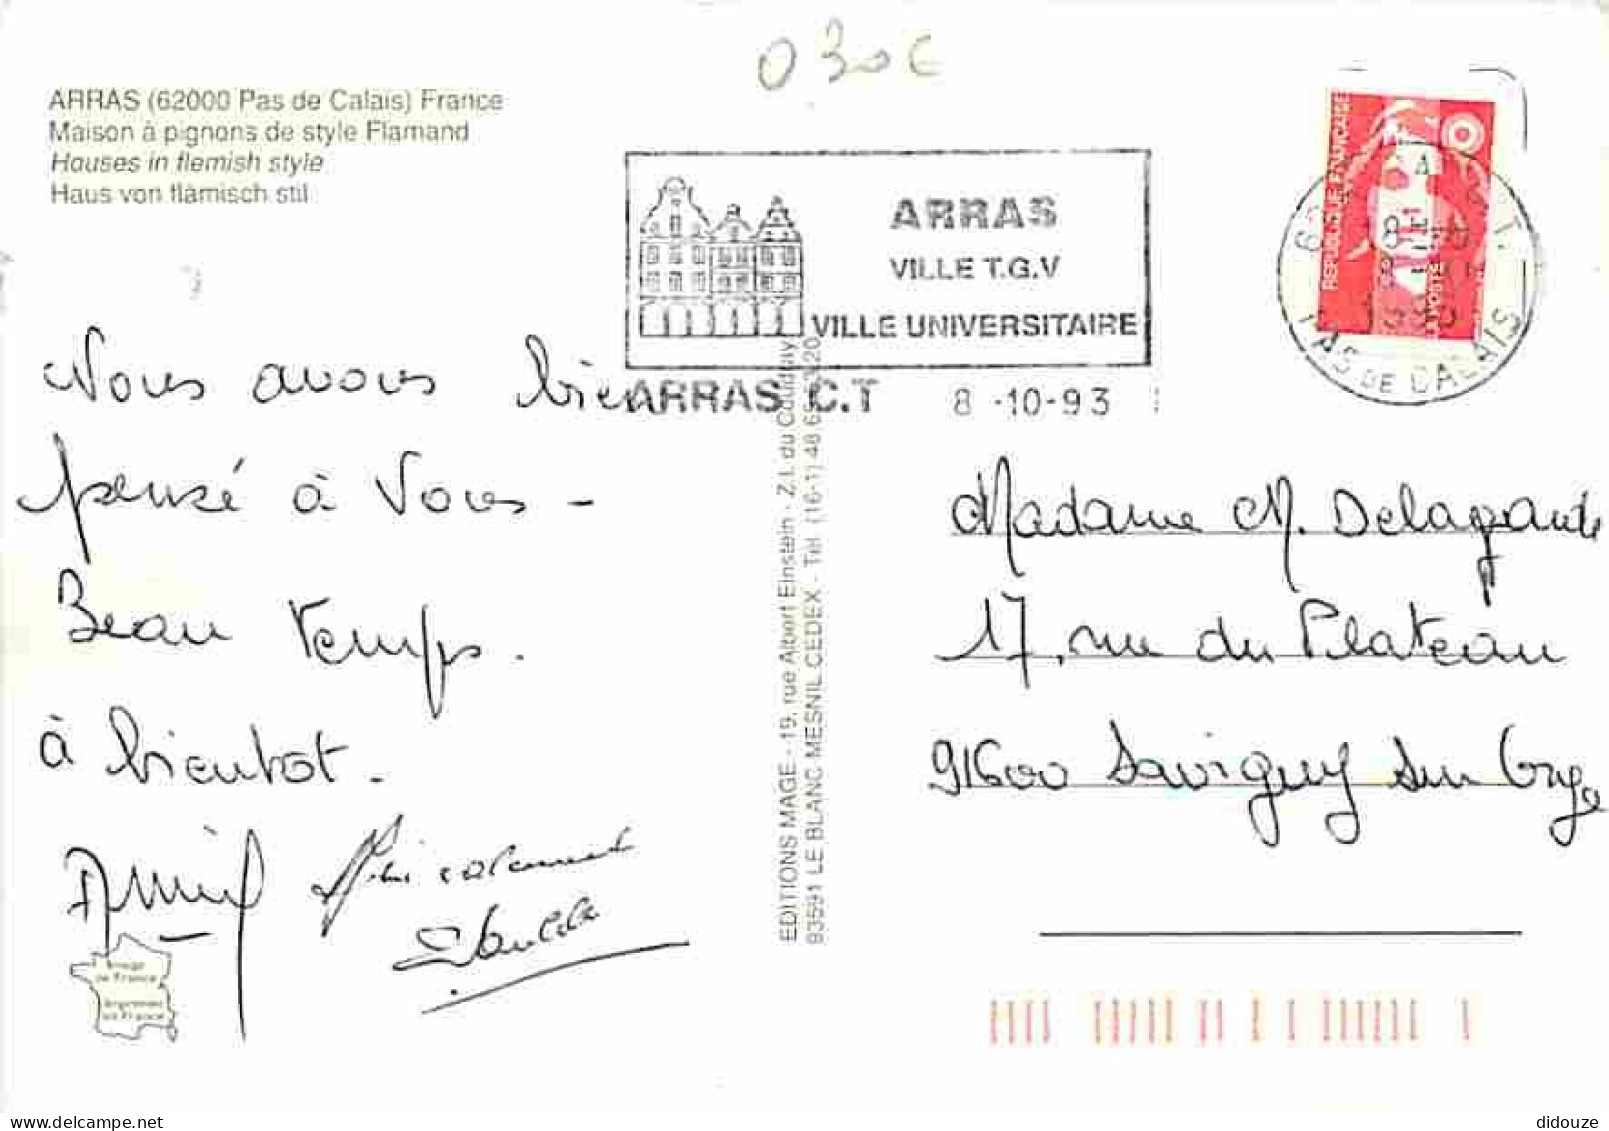 0 30 €
ARRAS (62000 Pas de Calais) France
Maison à pignons de style Flamand
Houses in flemish style
Haus von flämisch stil
ARRAS
VILLE T.G.V
VILLE UNIVERSITAIRE
ARRAS C.T 8 -10-93
REPUBLIQUE FRANÇAISE
LA POSTE
PAS DE CALAIS
Nous avons bien
pensé à Vous -
Beau temps.
à bientot.
Amicalement
EDITIONS MAGE - 19, rue Albert Einstein - Z.I. du Coudray
93591 LE BLANC MESNIL CEDEX - Tél. (16-1) 48 65
Madame M. Delagrande
17, rue du Plateau
91600 Savigny sur Orge
Image
de France
Imprimée
en France
www.delcampe.net
didouze